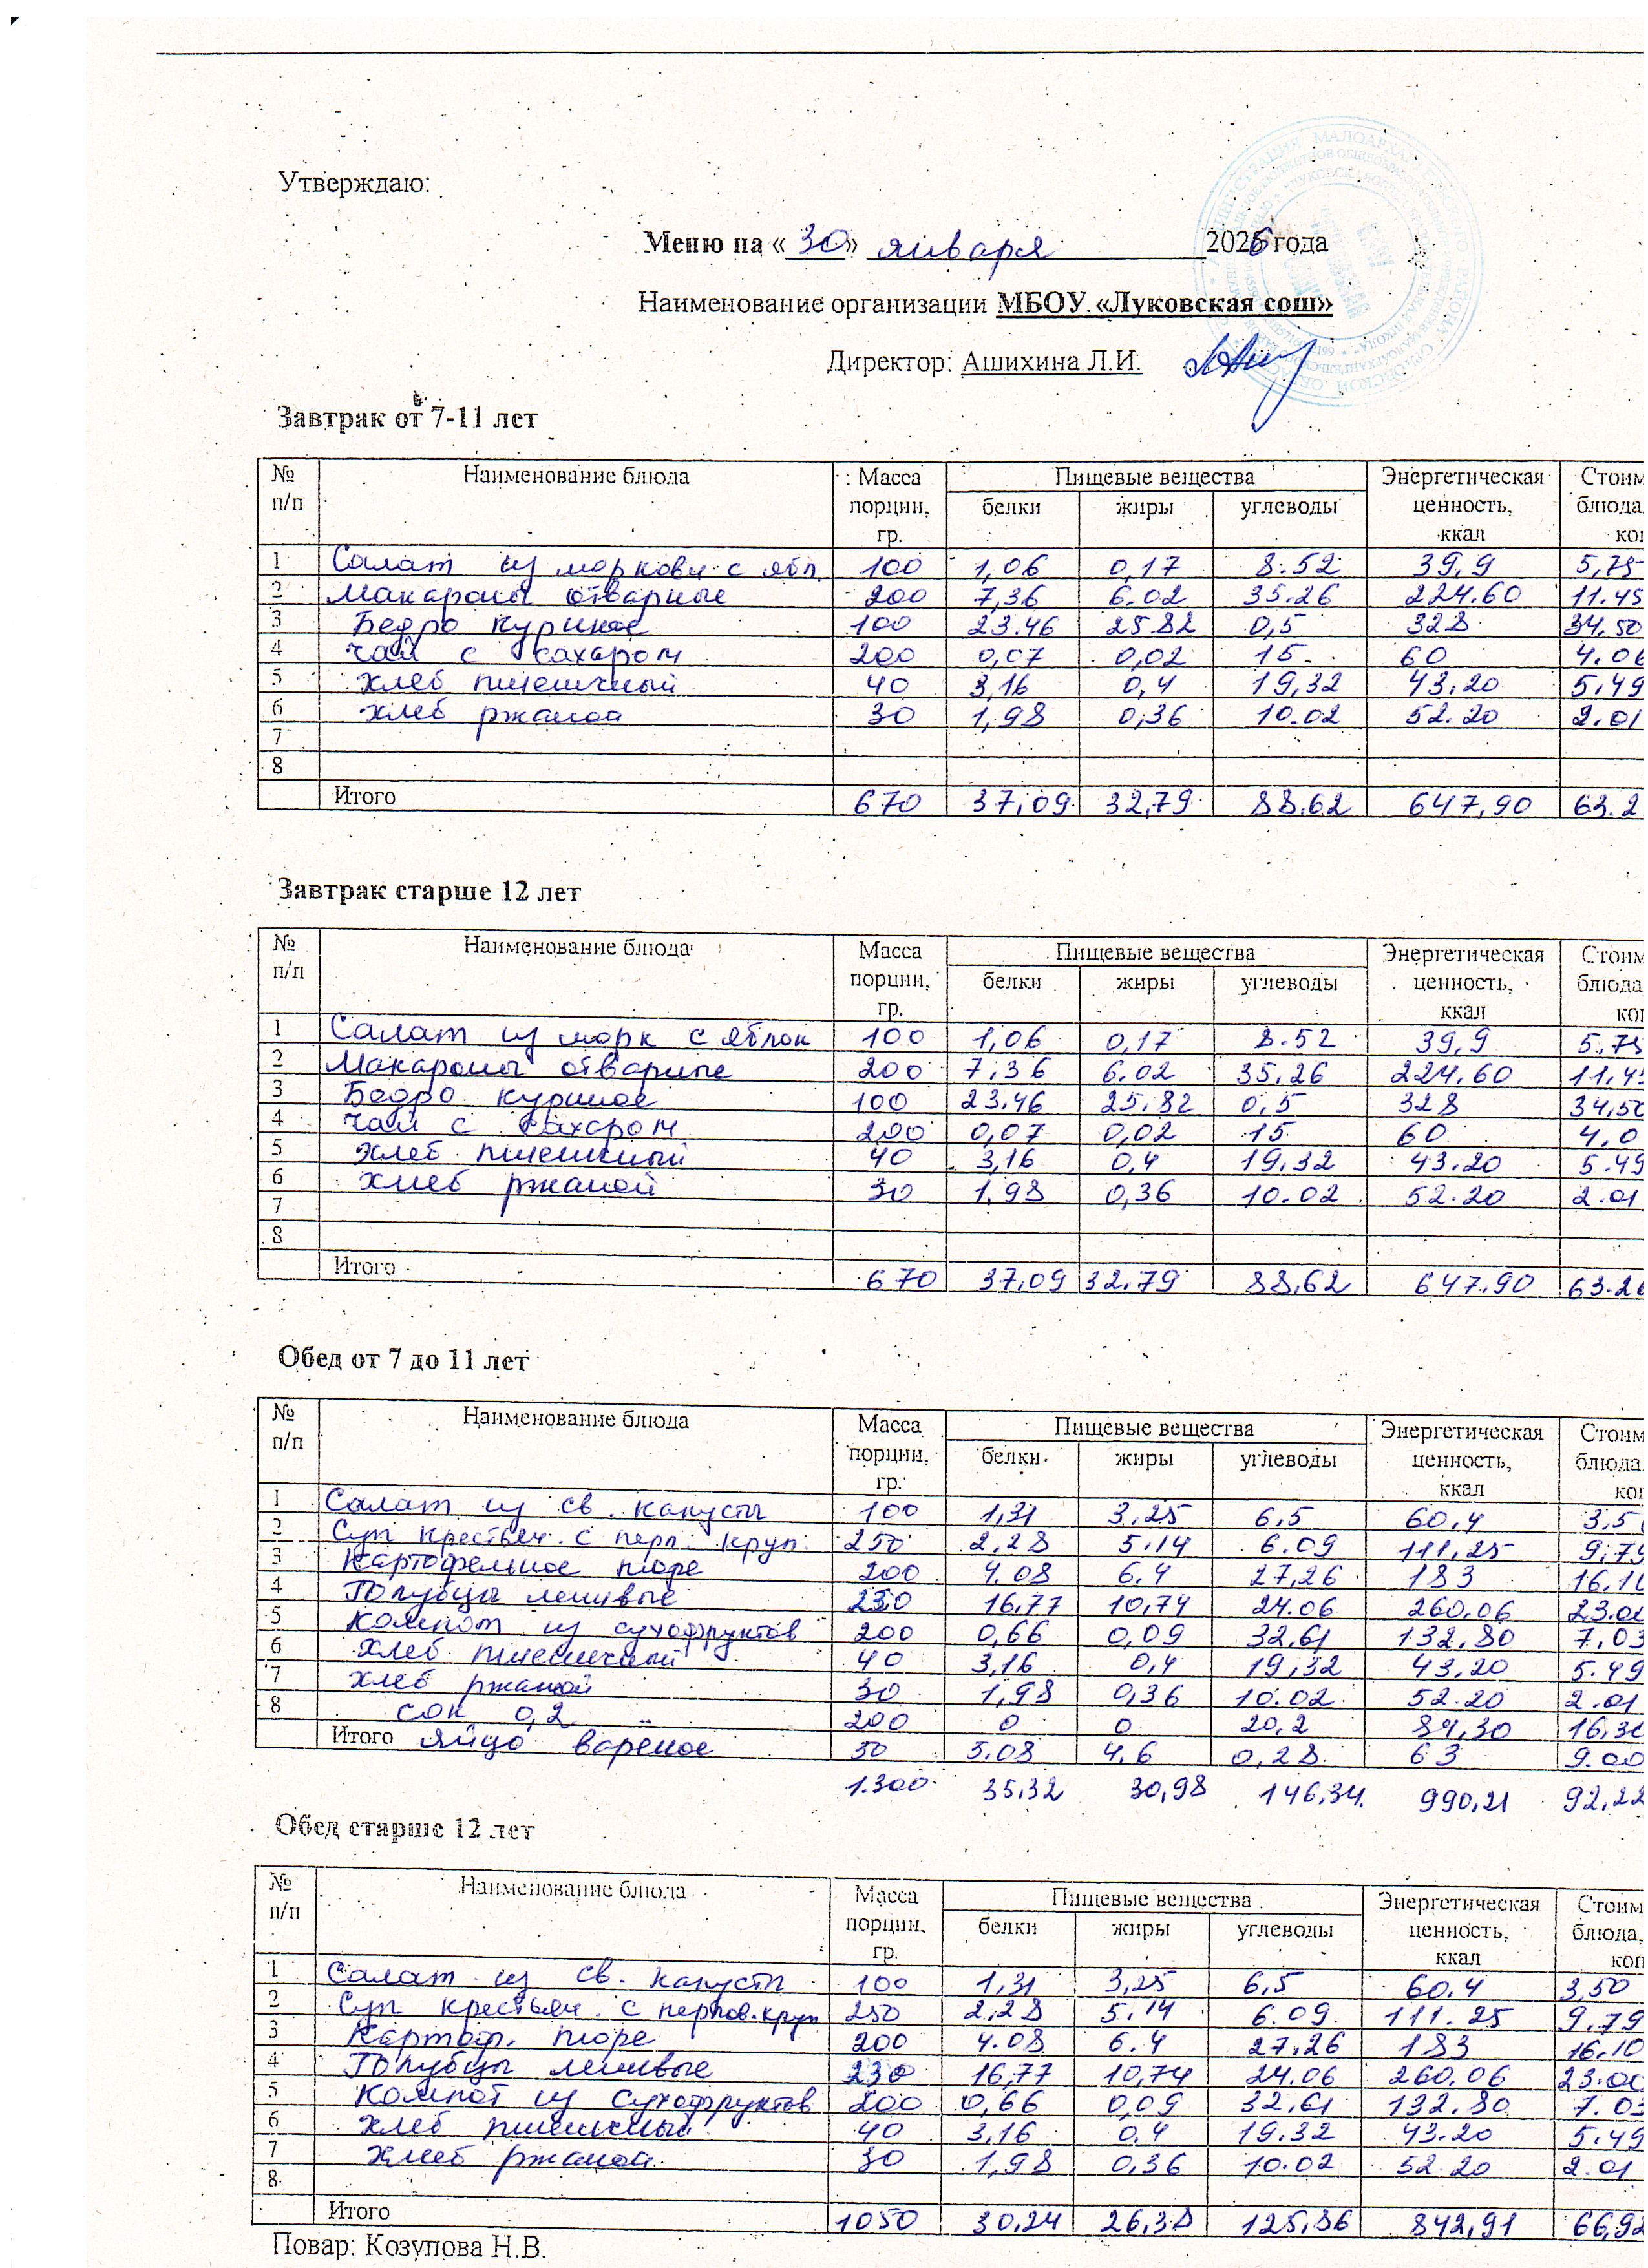 Утверждаю:
Меню на «30» января 2026 года
Наименование организации МБОУ «Луковская сош»
Директор: Ашихина Л.И.
Завтрак от 7-11 лет
№ п/п Наименование блюда Масса порции, гр. Пищевые вещества Энергетическая ценность, ккал Стоим
белки жиры углеводы блюда
1 Салат из моркови с ябл. 100 1,06 0,17 8.52 39,9 5,75
2 Макароны отварные 200 7,36 6.02 35.26 224.60 11.45
3 Бедро куриное 100 23.46 25.82 0,5 328 34,50
4 чай с сахаром 200 0,07 0,02 15 60 4.06
5 хлеб пшеничный 40 3,16 0,4 19,32 43.20 5.49
6 хлеб ржаной 30 1,98 0,36 10.02 52.20 2.01
7
8
Итого 670 37,09 32,79 88.62 647,90 63.2
Завтрак старше 12 лет
№ п/п Наименование блюда Масса порции, гр. Пищевые вещества Энергетическая ценность, ккал Стоим
белки жиры углеводы блюда
1 Салат из морк с яблок 100 1,06 0,17 8.52 39,9 5,75
2 Макароны отварные 200 7,36 6.02 35,26 224,60 11,45
3 Бедро куриное 100 23,46 25,82 0,5 328 34,50
4 чай с сахаром 200 0,07 0,02 15 60 4,0
5 хлеб пшеничный 40 3,16 0,4 19,32 43.20 5.49
6 хлеб ржаной 30 1,98 0,36 10.02 52.20 2.01
7
8
Итого 670 37,09 32.79 88,62 647.90 63.26
Обед от 7 до 11 лет
№ п/п Наименование блюда Масса порции, гр. Пищевые вещества Энергетическая ценность, ккал Стоим
белки жиры углеводы блюда
1 Салат из св. капусты 100 1,31 3,25 6,5 60,4 3,5
2 Суп крестьян. с перл. круп. 250 2,28 5.14 6.09 111,25 9,79
3 Картофельное пюре 200 4.08 6.4 27,26 183 16.10
4 Голубцы ленивые 230 16,77 10,74 24.06 260,06 23.00
5 Компот из сухофруктов 200 0,66 0,09 32,61 132,80 7,03
6 хлеб пшеничный 40 3,16 0,4 19,32 43,20 5.49
7 хлеб ржаной 30 1,98 0,36 10.02 52.20 2.01
8 сок 0,2 200 0 0 20,2 84,30 16,30
Итого яйцо вареное 50 5.08 4.6 0,28 63 9.00
1.300 35,32 30,98 146,34 990,21 92,22
Обед старше 12 лет
№ п/п Наименование блюда Масса порции, гр. Пищевые вещества Энергетическая ценность, ккал Стоим
белки жиры углеводы блюда,
1 Салат из св. капусты 100 1,31 3,25 6,5 60,4 3,50
2 Суп крестьян. с перлов. круп 250 2,28 5.14 6.09 111.25 9,79
3 Картоф. пюре 200 4.08 6.4 27.26 183 16,10
4 Голубцы ленивые 230 16,77 10,74 24.06 260,06 23.00
5 Компот из сухофруктов 200 0,66 0,09 32,61 132.80 7.03
6 хлеб пшеничный 40 3,16 0.4 19.32 43.20 5.49
7 хлеб ржаной 30 1,98 0,36 10.02 52.20 2.01
8
Итого 1050 30,24 26,38 125,86 842,91 66,92
Повар: Козупова Н.В.